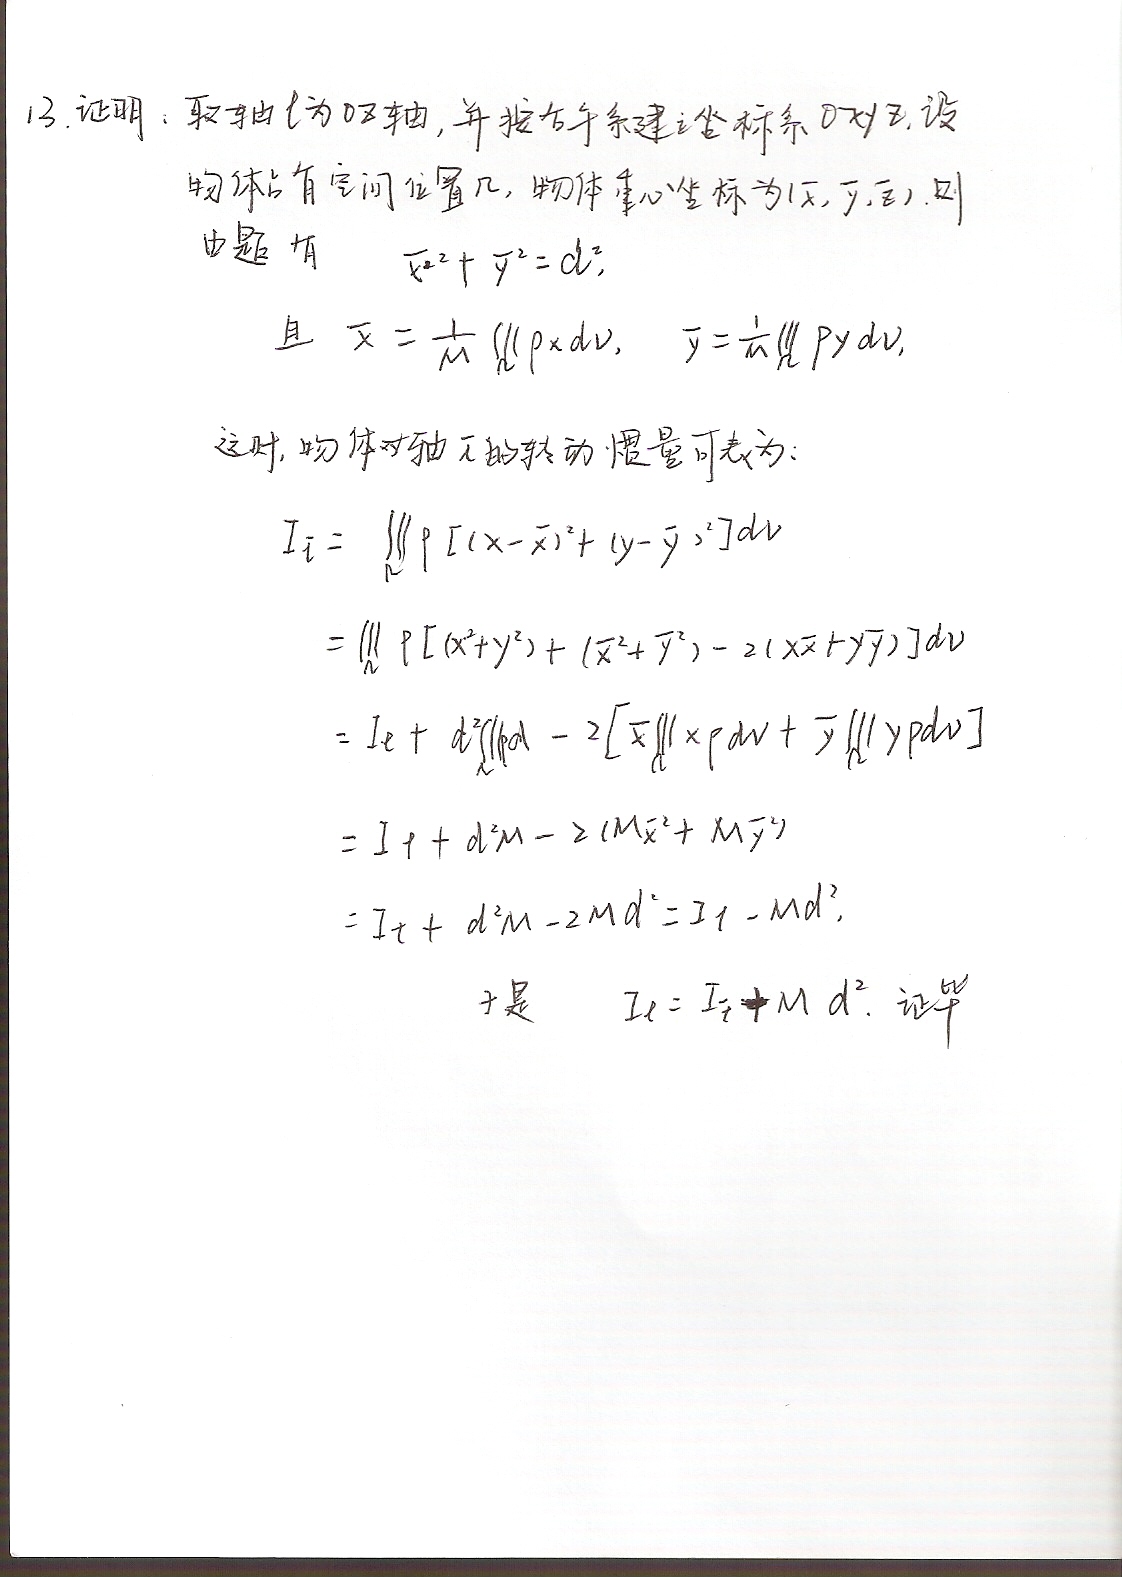 13.证明：取轴l为OZ轴，并按右手系建立坐标系OXYZ.设
物体占有空间位置Ω，物体重心坐标为(x̄, ȳ, z̄).则
由题有 x̄²+ȳ²=d²,
且 x̄ = 1/M ∭_Ω ρxdv, ȳ = 1/M ∭_Ω ρydv,
这时，物体对轴 l̄ 的转动惯量可表为：
I_l̄ = ∭_Ω ρ[(x-x̄)²+(y-ȳ)²]dv
= ∭_Ω ρ[(x²+y²)+(x̄²+ȳ²)-2(xx̄+yȳ)]dv
= I_l + d²∭_Ω ρd - 2[x̄∭_Ω xρdv + ȳ∭_Ω yρdv]
= I_l + d²M - 2(Mx̄²+Mȳ²)
= I_l + d²M - 2Md² = I_l - Md².
于是 I_l = I_l̄ + Md². 证毕